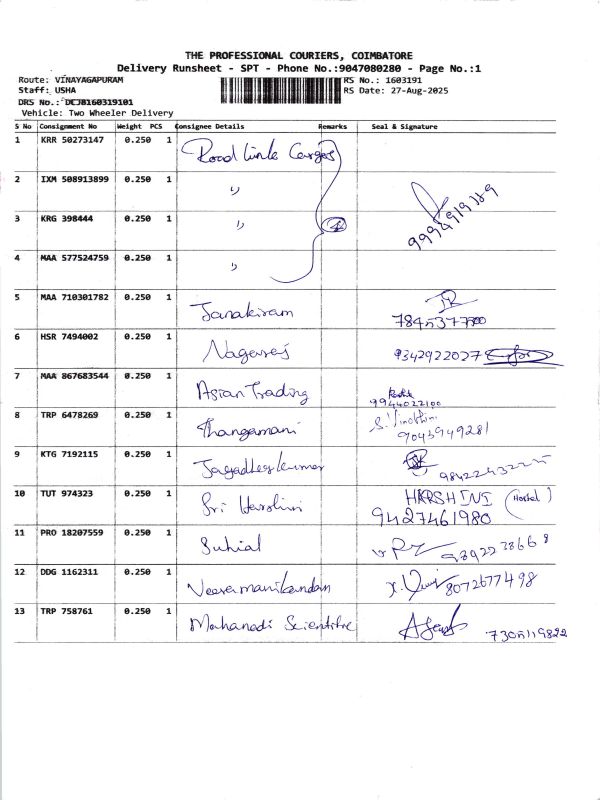 THE PROFESSIONAL COURIERS, COIMBATORE
Delivery Runsheet - SPT - Phone No.:9047080280 - Page No.:1
Route: VINAYAGAPURAM RS No.: 1603191
Staff: USHA RS Date: 27-Aug-2025
DRS No.: DCJ8160319101
Vehicle: Two Wheeler Delivery
S No Consignment No Weight PCS Consignee Details Remarks Seal & Signature
1 KRR 50273147 0.250 1 Road Link Cargos
2 IXM 508913899 0.250 1 "
3 KRG 398444 0.250 1 " 4
4 MAA 577524759 0.250 1 "
5 MAA 710301782 0.250 1 Janakiram
6 HSR 7494002 0.250 1 Nagaraj 9342922027
7 MAA 867683544 0.250 1 Asian Trading 9944022100
8 TRP 6478269 0.250 1 Thangamani S. Vinothini 9043949281
9 KTG 7192115 0.250 1 Jagadheskumar
10 TUT 974323 0.250 1 Sri Harshini HARSHINI (Hostel) 9427461980
11 PRO 18207559 0.250 1 Suhial
12 DDG 1162311 0.250 1 Veeramanikandan 8072677498
13 TRP 758761 0.250 1 Mahanadi Scientific 7305119822